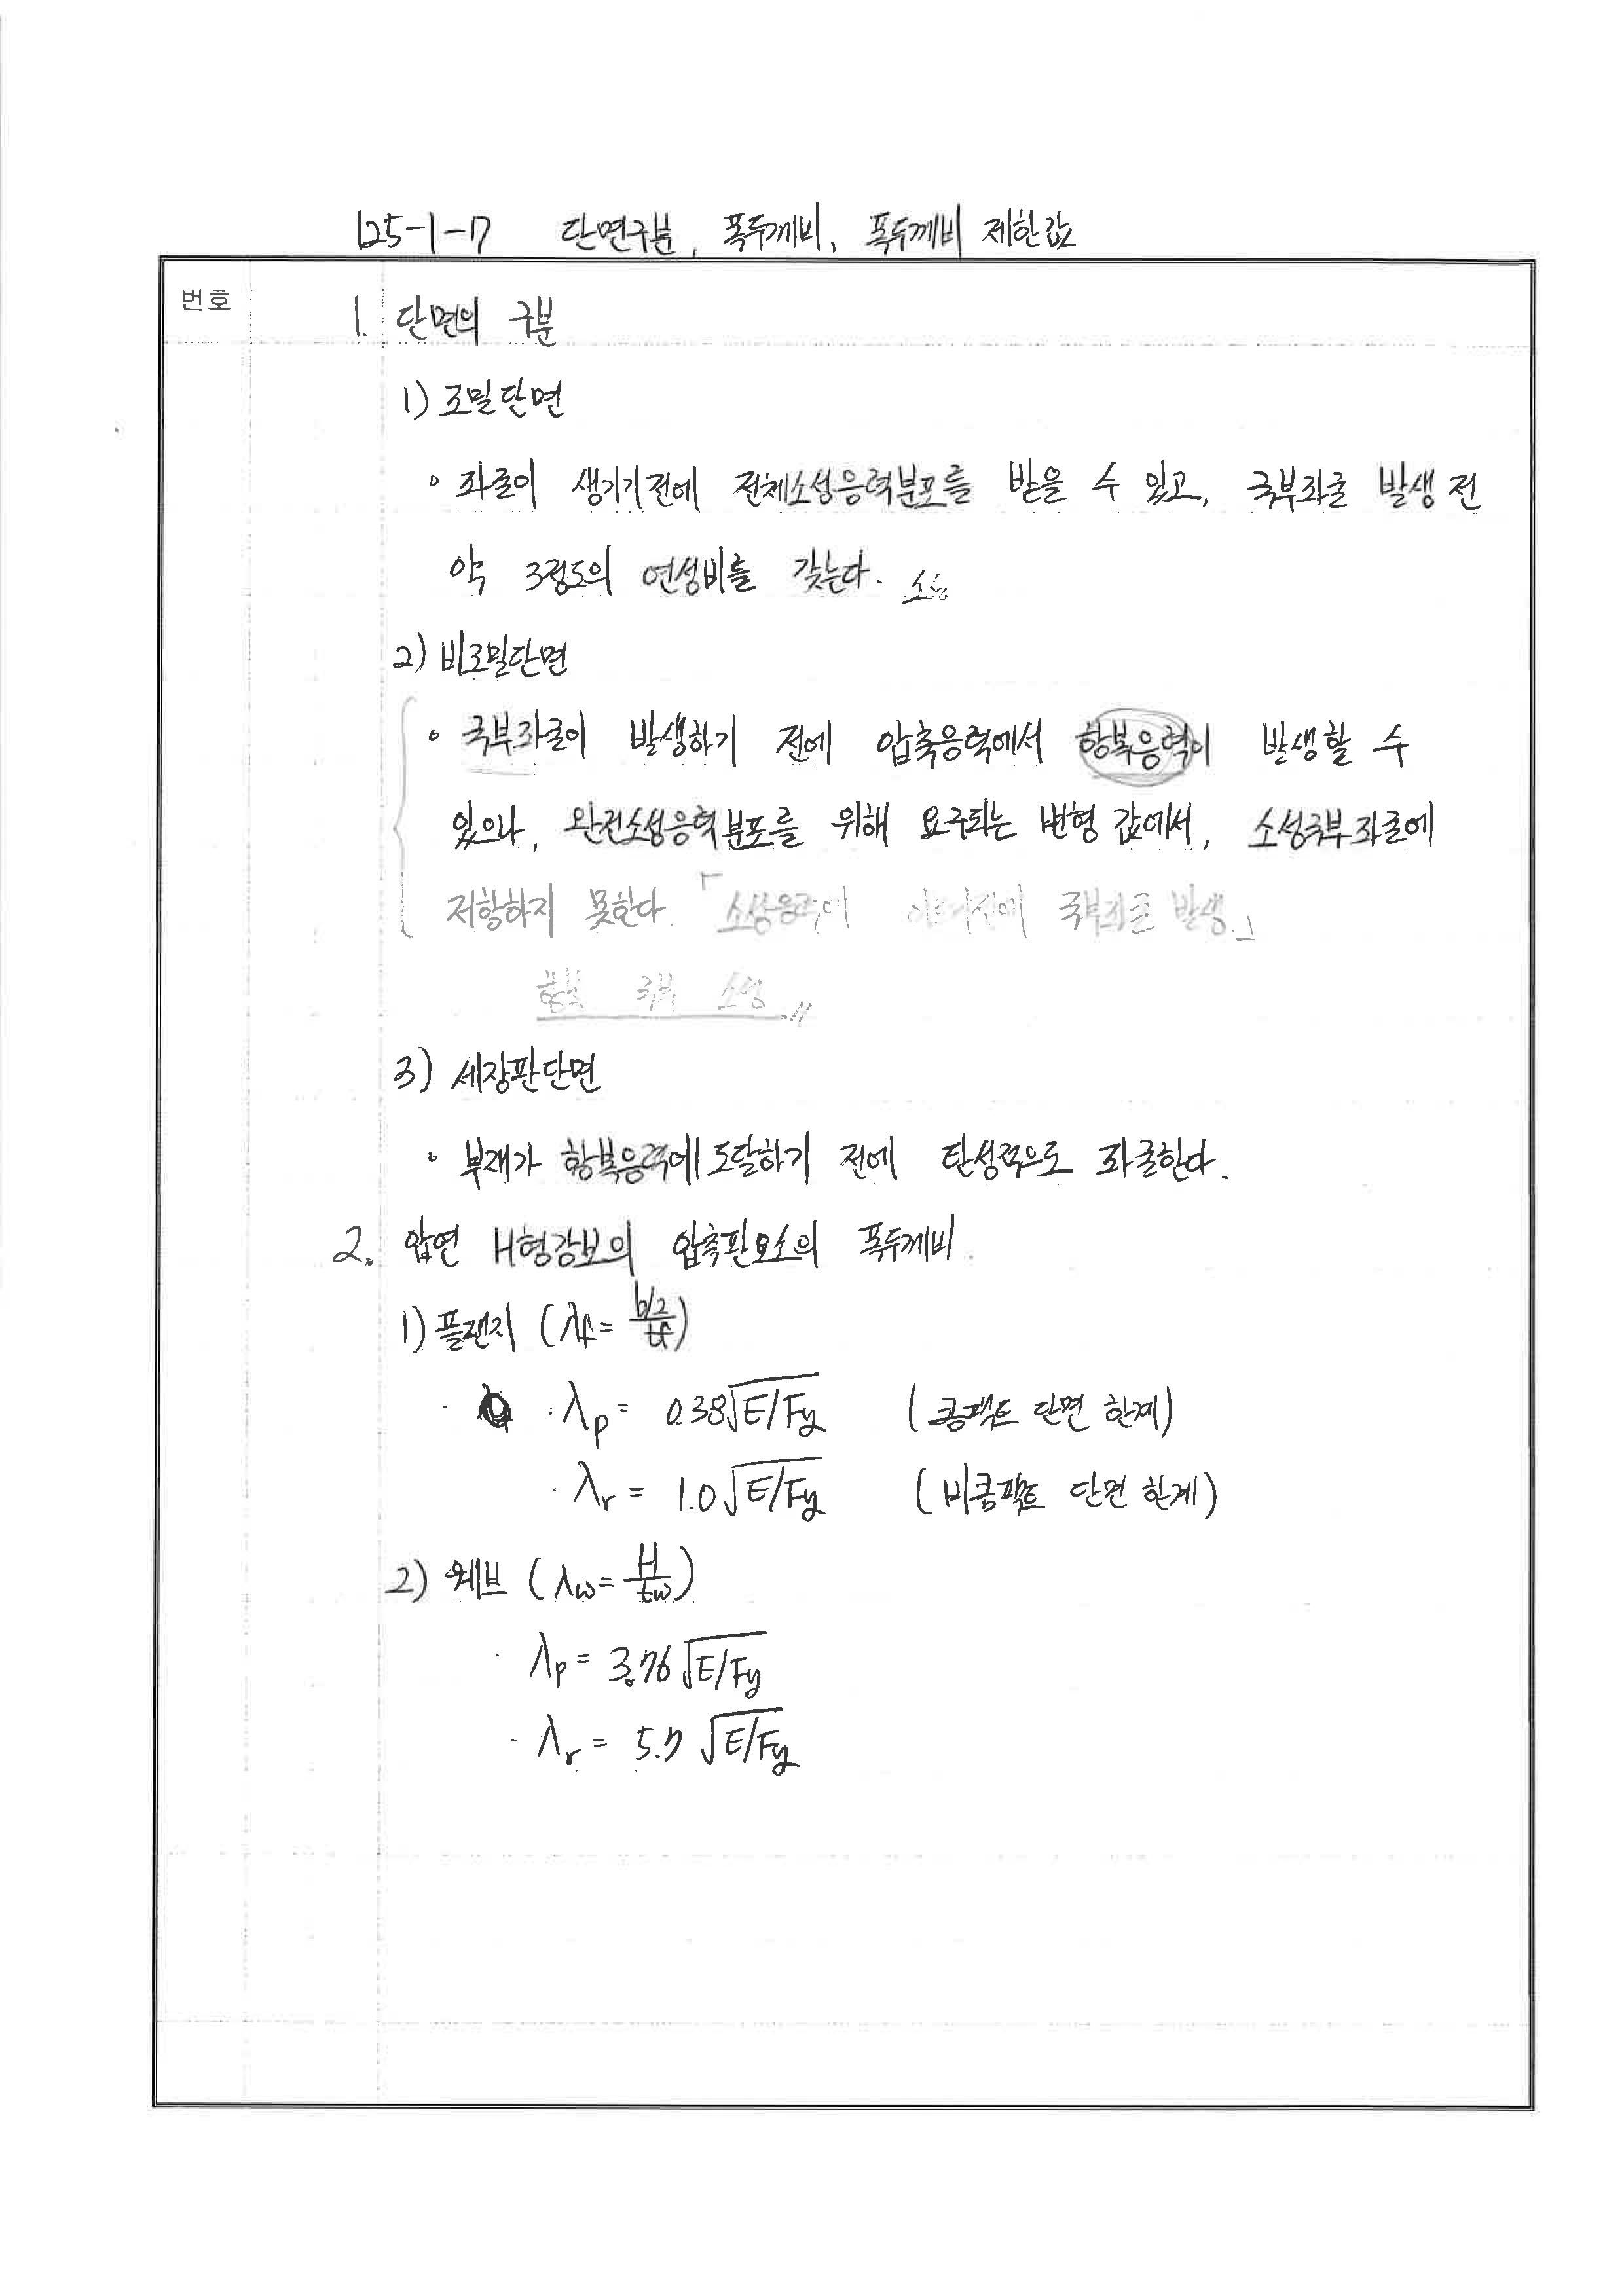 125-1-7 단면구분, 폭두께비, 폭두께비 제한값
번호
1. 단면의 구분
1) 조밀단면
∘ 좌굴이 생기기전에 전체소성응력분포를 받을 수 있고, 국부좌굴 발생 전
약 3정도의 연성비를 갖는다. 소성
2) 비조밀단면
∘ 국부좌굴이 발생하기 전에 압축응력에서 항복응력이 발생할 수
있으나, 완전소성응력분포를 위해 요구되는 변형 값에서, 소성국부좌굴에
저항하지 못한다. 「소성응력에 전에 국부좌굴 발생.」
항복 국부 소성.〃
3) 세장판단면
∘ 부재가 항복응력에 도달하기 전에 탄성적으로 좌굴한다.
2. 압연 H형강보의 압축판요소의 폭두께비.
1) 플랜지 (λf = b/2 / tf)
· λp = 0.38√E/Fy (콤팩트 단면 한계)
· λr = 1.0√E/Fy (비콤팩트 단면 한계)
2) 웨브 (λw = H/tw)
· λp = 3.76√E/Fy
· λr = 5.7√E/Fy